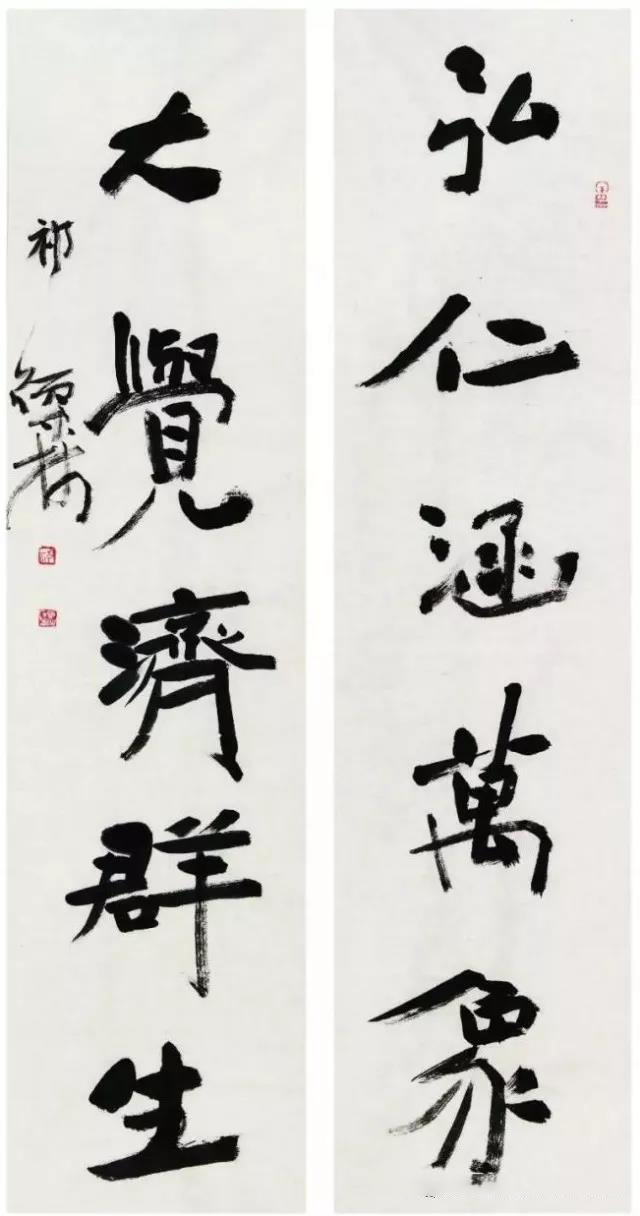 弘仁涵萬象
大覺濟群生
祁